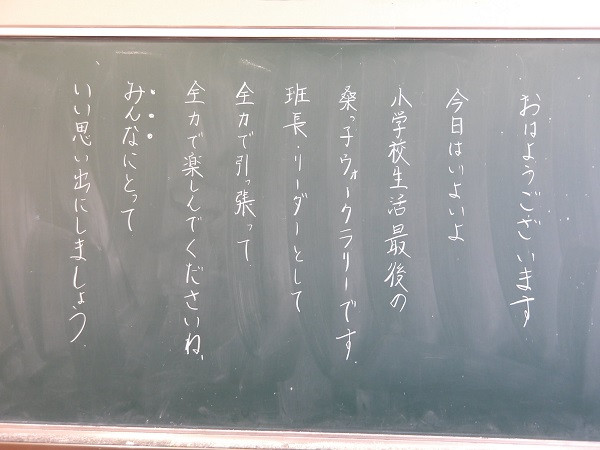 おはようございます
今日はいよいよ
小学校生活最後の
桑っ子ウォークラリーです.
班長・リーダーとして
全力で引っ張って
全力で楽しんでくださいね、
みんなにとって
いい思い出にしましょう.